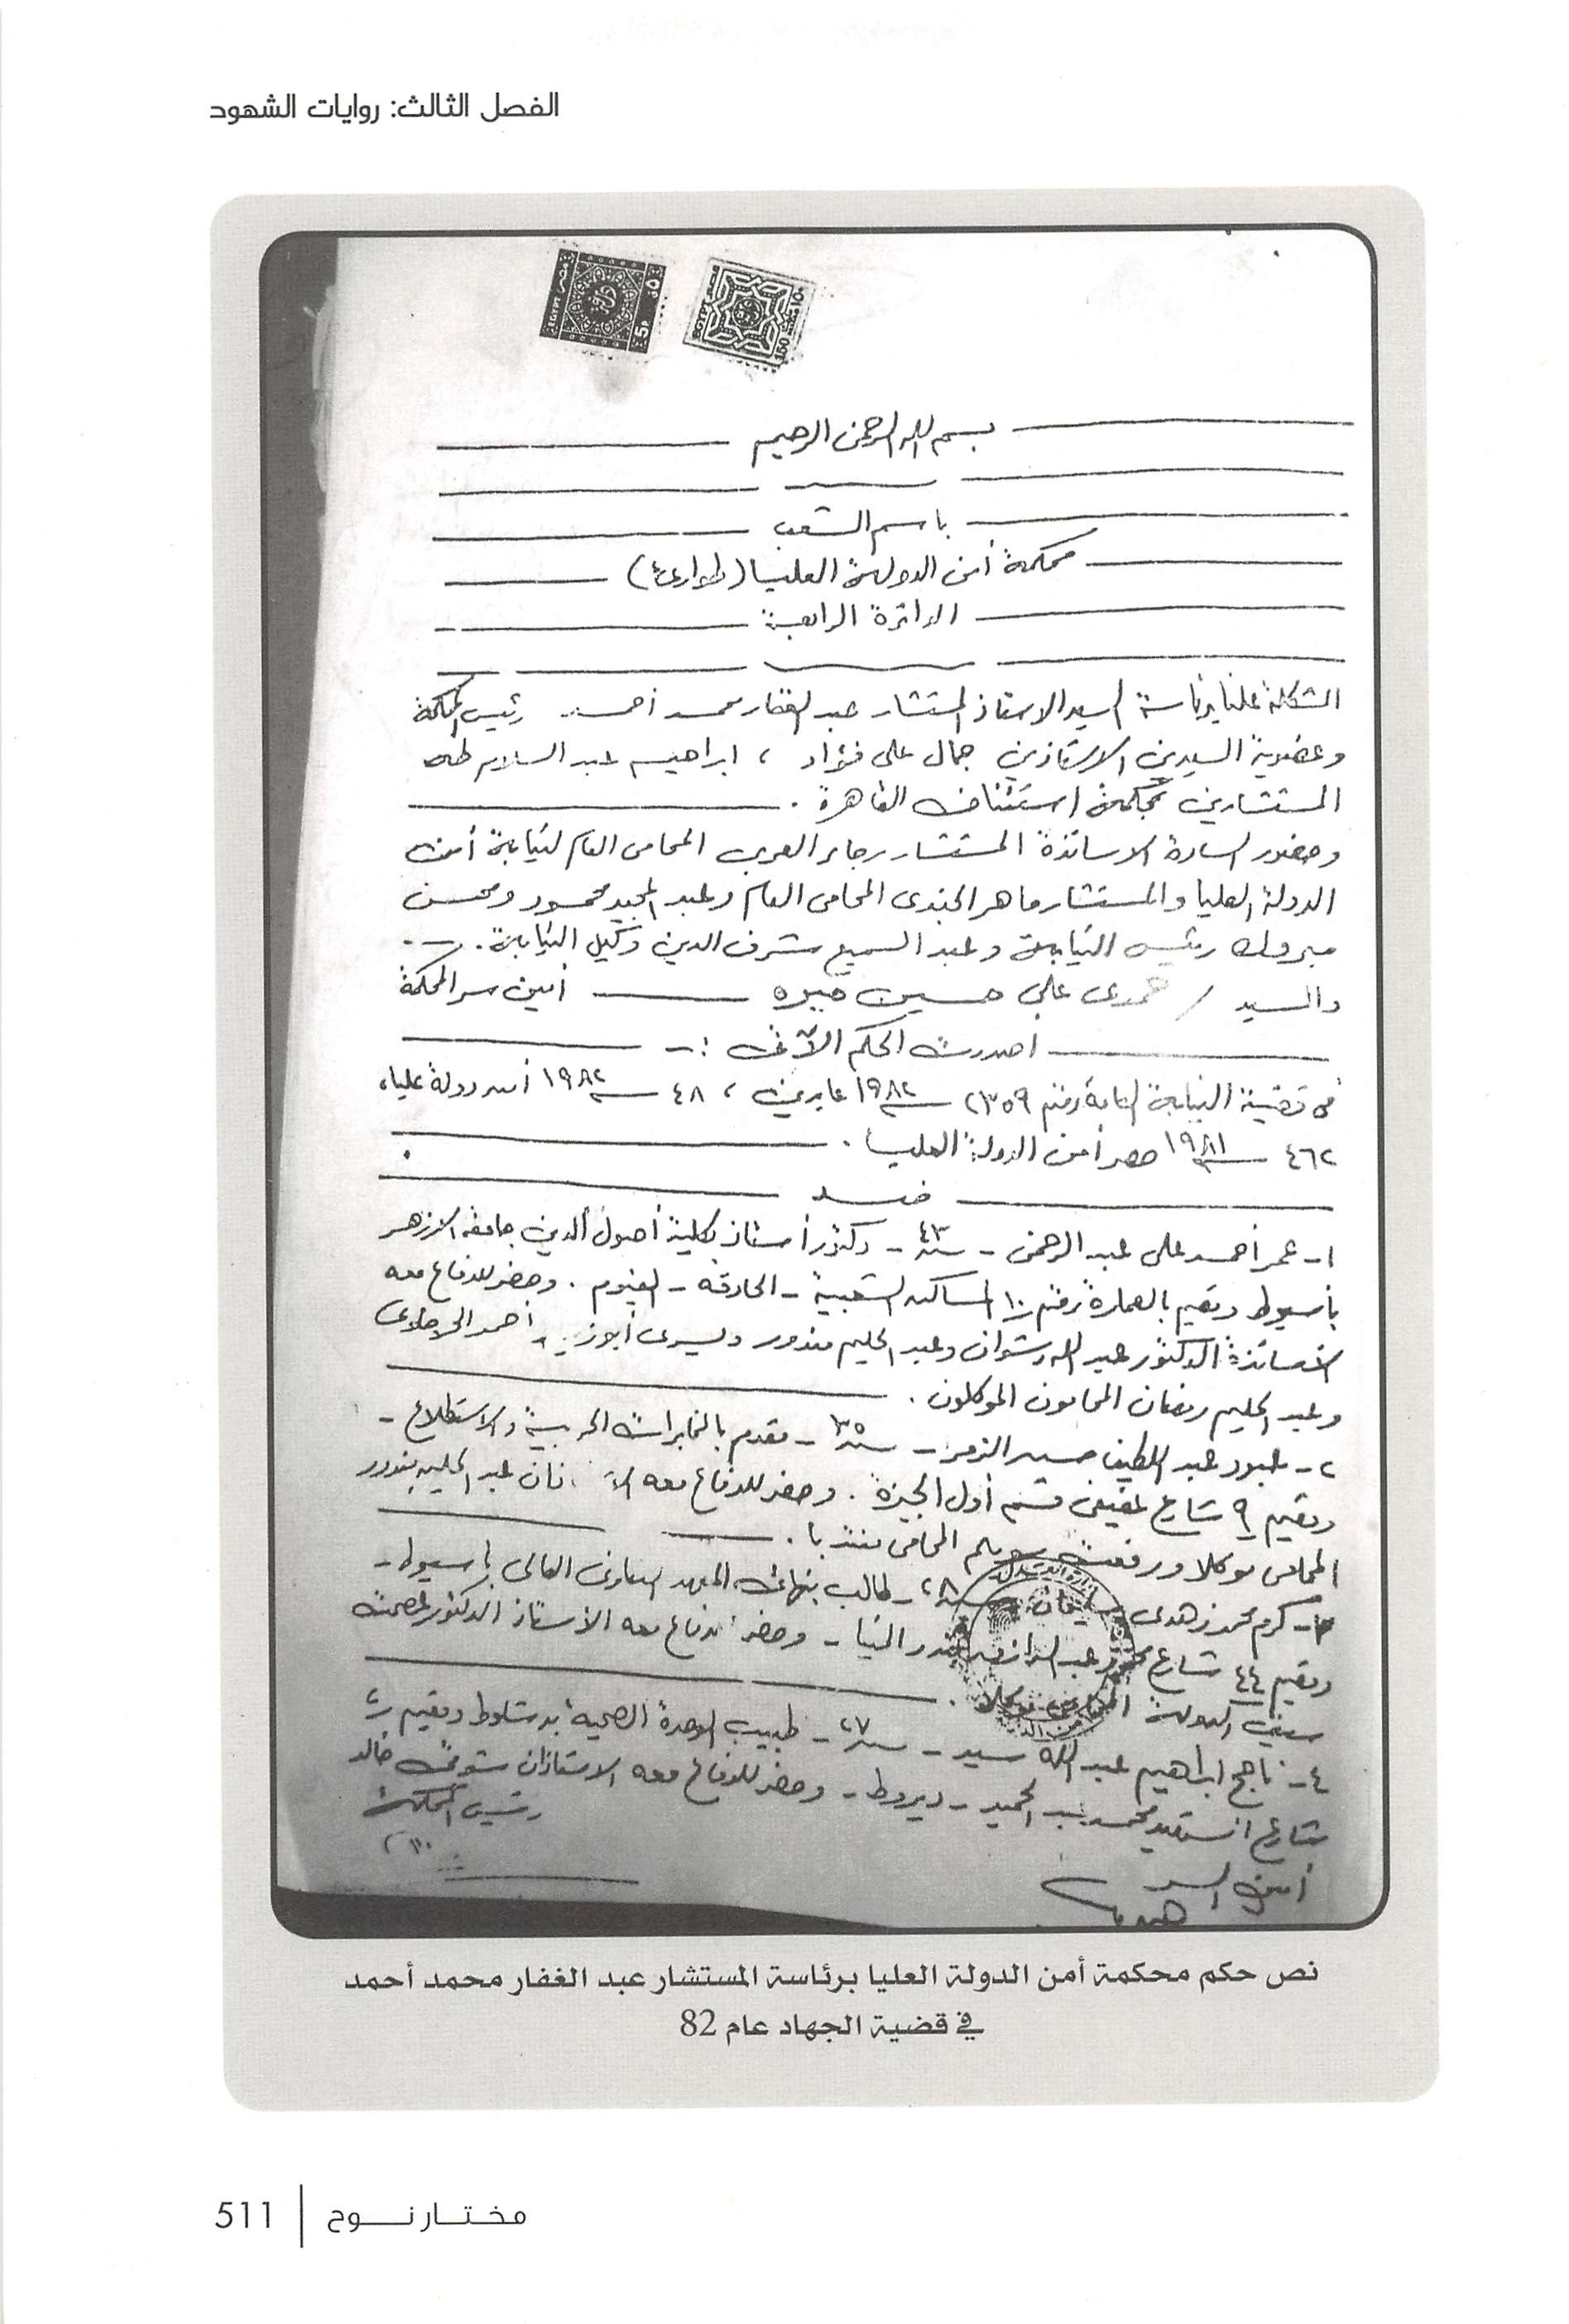 الفصل الثالث: روايات الشهود
EGYPT مصر
5P
EGYPT مصر
150
بسم الله الرحمن الرحيم
باسم الشعب
محكمة أمن الدولة العليا (طوارئ)
الدائرة الرابعة
المشكلة علنا برئاسة السيد الاستاذ المستشار عبد الغفار محمد أحمد رئيس المحكمة
وعضوية السيدين الاستاذين جمال على فؤاد ، ابراهيم عبد السلام طه
المستشارين بمحكمة استئناف القاهرة .
وحضور السادة الاساتذة المستشار رجاء العربى المحامى العام لنيابة أمن
الدولة العليا والمستشار ماهر الجندى المحامى العام وعبد المجيد محمود ومحسن
مبروك رئيس النيابة وعبد السميع شرف الدين وكيل النيابة .
والسيد / حمدى على حسين أمين سر المحكمة
اصدرت الحكم الآتى :-
فى قضية النيابة العامة رقم ٢٣٥٩ سنة ١٩٨٢ عابدين ، ٤٨ سنة ١٩٨٢ أمن دولة عليا ،
٤٦٢ سنة ١٩٨١ حصر أمن الدولة العليا .
ضد
١- عمر أحمد على عبد الرحمن - سنه ٤٣ - دكتور أستاذ بكلية أصول الدين جامعة الازهر
بأسيوط ومقيم بالعمارة رقم ١٠ المساكن الشعبية - الحادقة - الفيوم . وحضر للدفاع معه
الأساتذة الدكتور عبد الله رشوان وعبد الحليم مندور ويسرى أحمد
وعبد الحليم رمضان المحامون الموكلون .
٢- عبود عبد اللطيف حسن الزمر - سنه ٣٥ - مقدم بالمخابرات الحربية والاستطلاع -
ومقيم ٩ شارع عفيفى قسم أول الجيزة . وحضر للدفاع معه عبد الحليم مندور
المحامى موكلا ورفعت المحامى منتدبا .
٣- كرم محمد زهدى سليمان - سنه ٢٨ - طالب بنهائى المعهد التعاونى العالى بأسيوط -
ومقيم ٤٤ شارع بندر المنيا - وحضر للدفاع معه الاستاذ الدكتور عصمت
سيف الدولة المحامى موكلا .
٤- ناجح ابراهيم عبد الله سيد - سنه ٢٧ - طبيب الوحدة الصحية بدشلوط ومقيم
شارع محمد عبد الحميد - ديروط - وحضر للدفاع معه الاستاذان شوقى خالد
رئيس المحكمة
أمين السر
نص حكم محكمة أمن الدولة العليا برئاسة المستشار عبد الغفار محمد أحمد
في قضية الجهاد عام 82
مختار نوح | 511